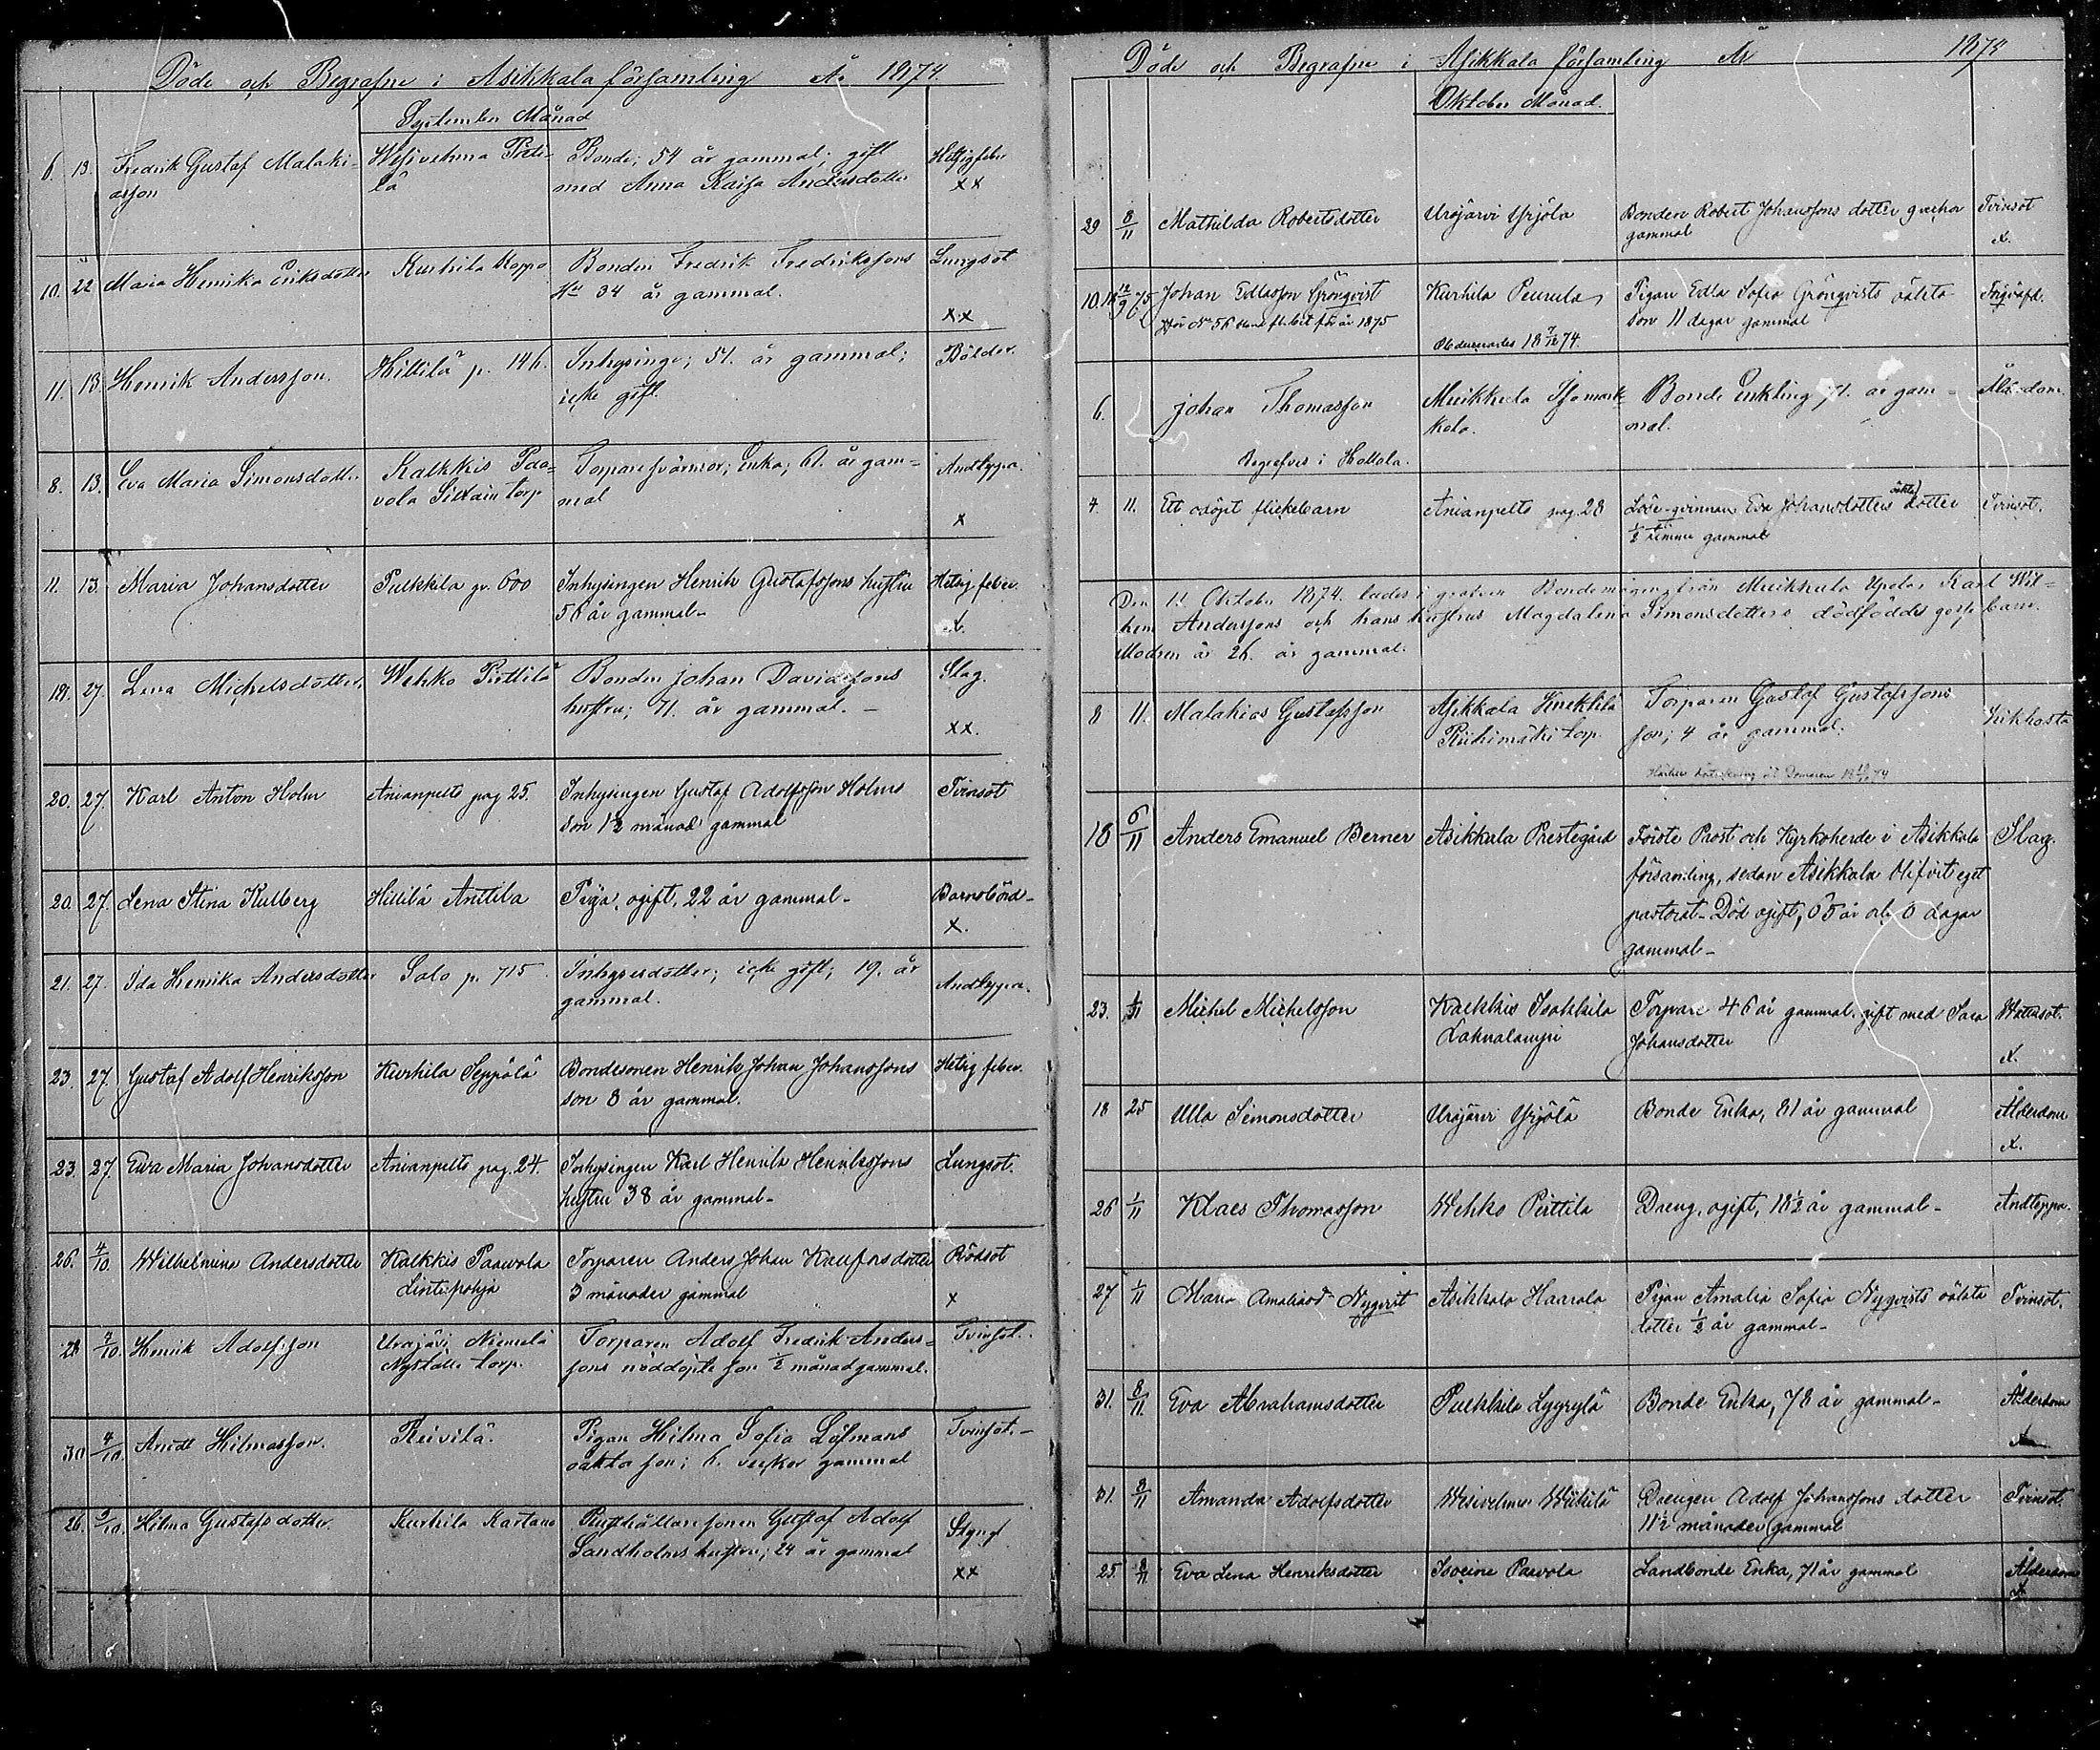 Döde och Begrafne i Asikkala församling År 1874.
September Månad
6. 13. Fredrik Gustaf Malaki- Wesivehma Perti- Bonde; 54 år gammal; gift Hetsigfeber
asson lä med Anna Kaisa Andersdotter xx
10. 22 Maria Henrika Eriksdotter Kurhila Hoppo Bonden Fredrik Fredrikssons Lungsot
Hu 34 år gammal. xx
11. 13. Henrik Andersson. Hillilä p. 146. Inhysinge; 54. år gammal; Bölder.
icke gift.
8. 13. Eva Maria Simonsdotter Kalkkis Paa- Torparesvärmor; Enka; 61. år gam= Andtäppa.
vola torp mal x
11. 13. Maria Johansdotter Pulkkila p. 600 Inhysingen Henrik Gustafssons hustru Hetsig feber.
56 år gammal- x.
19. 27. Lena Michelsdotter, Wehko Perttilä Bonden Johan Davidssons Slag.
hustru; 71. år gammal. - xx.
20. 27. Karl Anton Holm Anianpelto pag 25. Inhysingen Gustaf Adolfsson Holms Tvinsot
son 1½ månad gammal
20. 27. Lena Stina Kulberg Hillilä Anttila Piga, ogift, 22 år gammal- Barnsbörd-
x.
21. 27. Ida Henrika Andersdotter Salo p. 715. Inhysesdotter; icke gift; 19. år Andtäppa.
gammal.
23. 27. Gustaf Adolf Henriksson Kurhila Seppälä Bondesonen Henrik Johan Johanssons Hetsig feber.
son 8 år gammal.
23. 27. Eva Maria Johansdotter Anianpelto pag. 24. Inhysingen Karl Henrik Henrikssons Lungsot.
hustru 38 år gammal-
26. 4/10. Wilhelmina Andersdotter Kalkkis Paavola Torparen Anders Johan dotter Rödsot
Lintupohja 3 månader gammal x
28 7/10. Henrik Adolfsson Urajärvi Niemelä Torparen Adolf Fredrik Anders= Tvinsot.
torp. sons nöddöpte son ½ månad gammal.
30 4/10. Antti Hilmasson. Reivilä. Pigan Hilma Sofia Löfmans Tvinsot.-
oäkta son; 6. veckor gammal
26. 9/10. Hilma Gustafsdotter. Kurhila Kartano Rusthållaresonen Gustaf Adolf Styng
Sandholms hustru; 24 år gammal xx
Döde och Begrafne i Asikkala församling År 1874
Oktober Månad.
29 8/11 Mathilda Robertsdotter Urajärvi Yrjölä Bonden Robert Johanssons dotter Tvinsot
gammal x.
Johan Edlasson Grönqvist Kurhila Peurula Pigan Edla Sofia Grönqvists oäkta Förqväfd.
för år 1875 18 74. son 11 dagar gammal
6. Johan Thomasson Muikkula Isomark- Bonde Enkling 71. år gam- Ålderdom.
kola. mal.
Begrofvos i Hollola.
4. 11. Ett odöpt flickebarn Anianpelto pag. 28 Löse-qvinnan Eva Johansdotters oäkta dotter Tvinsot.
½ timme gammal
Den 11 Oktober 1874. lades i grafven Bondemågen från Muikkula Upola Karl Wil-
helm Anderssons och hans hustrus Magdalena Simonsdotters dödfödda gossebarn.
Modren är 26. år gammal.
8 11. Malakias Gustafsson Asikkala Knektilä Torparen Gustaf Gustafssons Kikhosta
Riihimäki torp. son; 4 år gammal.
18 6/11 Anders Emanuel Berner Asikkala Prestegård Förste Prost och Kyrkoherde i Asikkala Slag.
församling, sedan Asikkala blifvit eget
pastorat- Död ogift, 65 år och 6 dagar
gammal-
23. 1/11 Michel Michelsson Kalkkis Isokkila Torpare 46 år gammal. gift med Sara Wattusot.
Laknalampi Johansdotter x.
18 25 Ulla Simonsdotter Urajärvi Yrjölä Bonde Enka, 81 år gammal Ålderdom
x.
26 1/11 Klaes Thomasson Wehko Perttilä Dreng, ogift, 18½ år gammal- Andtäppa.
27 1/11 Maria Amaliasd. Nyqvist Asikkala Haarala Pigan Amalia Sofia Nyqvists oäkta Tvinsot.
dotter ½ år gammal-
31. 8/11. Eva Abrahamsdotter Pulkkila Lyyrylä Bonde Enka, 78 år gammal- Ålderdom
31. 8/11 Amanda Adolfsdotter Wesivehma Drengen Adolf Johanssons dotter Tvinsot.
11½ månader gammal
25. 8/11 Eva Lena Henriksdotter Isoeine Paavola Landbonde Enka, 71 år gammal Ålderdom
x.